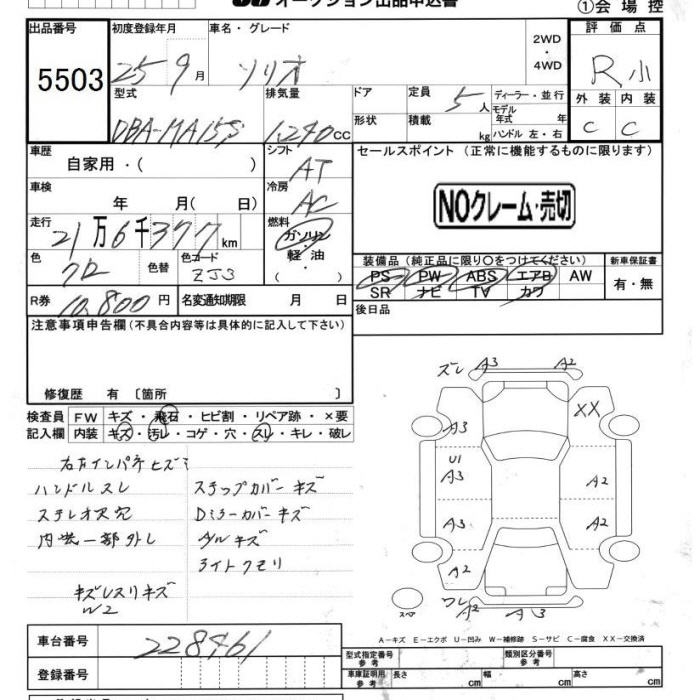 オークション出品申込書
①会場控
出品番号 初度登録年月 車名・グレード 2WD ・ 4WD 評価点
5503 25 9月 ソリオ R小
型式 排気量 ドア 定員 5人 ディーラー・並行 外装 内装
モデル年式 年
DBA-MA15S 1,240cc 形状 積載 kg ハンドル 左・右 C C
車歴 自家用・( ) シフト AT セールスポイント (正常に機能するものに限ります)
車検 年 月( 日) 冷房 AC NOクレーム・売切
走行 21万6千377km 燃料 ガソリン・軽油・( )
装備品 (純正品に限り○をつけてください) 新車保証書
色 クロ 色替 色コード ZJ3 PS PW ABS エアB AW 有・無
SR ナビ TV カワ
R券 10,800円 名変通知期限 月 日 後日品
注意事項申告欄(不具合内容等は具体的に記入して下さい)
修復歴 有 〔箇所 〕
検査員記入欄 FW キズ・飛石・ヒビ割・リペア跡・×要
内装 キズ・汚レ・コゲ・穴・スレ・キレ・破レ
右右インパネヒズミ
ハンドルスレ ステップカバーキズ
ステレオ欠穴 Dミラーカバーキズ
内装一部外し
ライトクモリ
W2
ズレ A3 A2
XX
A3
U1
A3 A2
A3 A2
A2
ワレ A2 A3
スペア
A-キズ E-エクボ U-凹み W-補修跡 S-サビ C-腐食 XX-交換済
車台番号 228461
型式指定番号 参考 類別区分番号 参考
登録番号 車庫証明用 参考 長さ cm 幅 cm 高さ cm